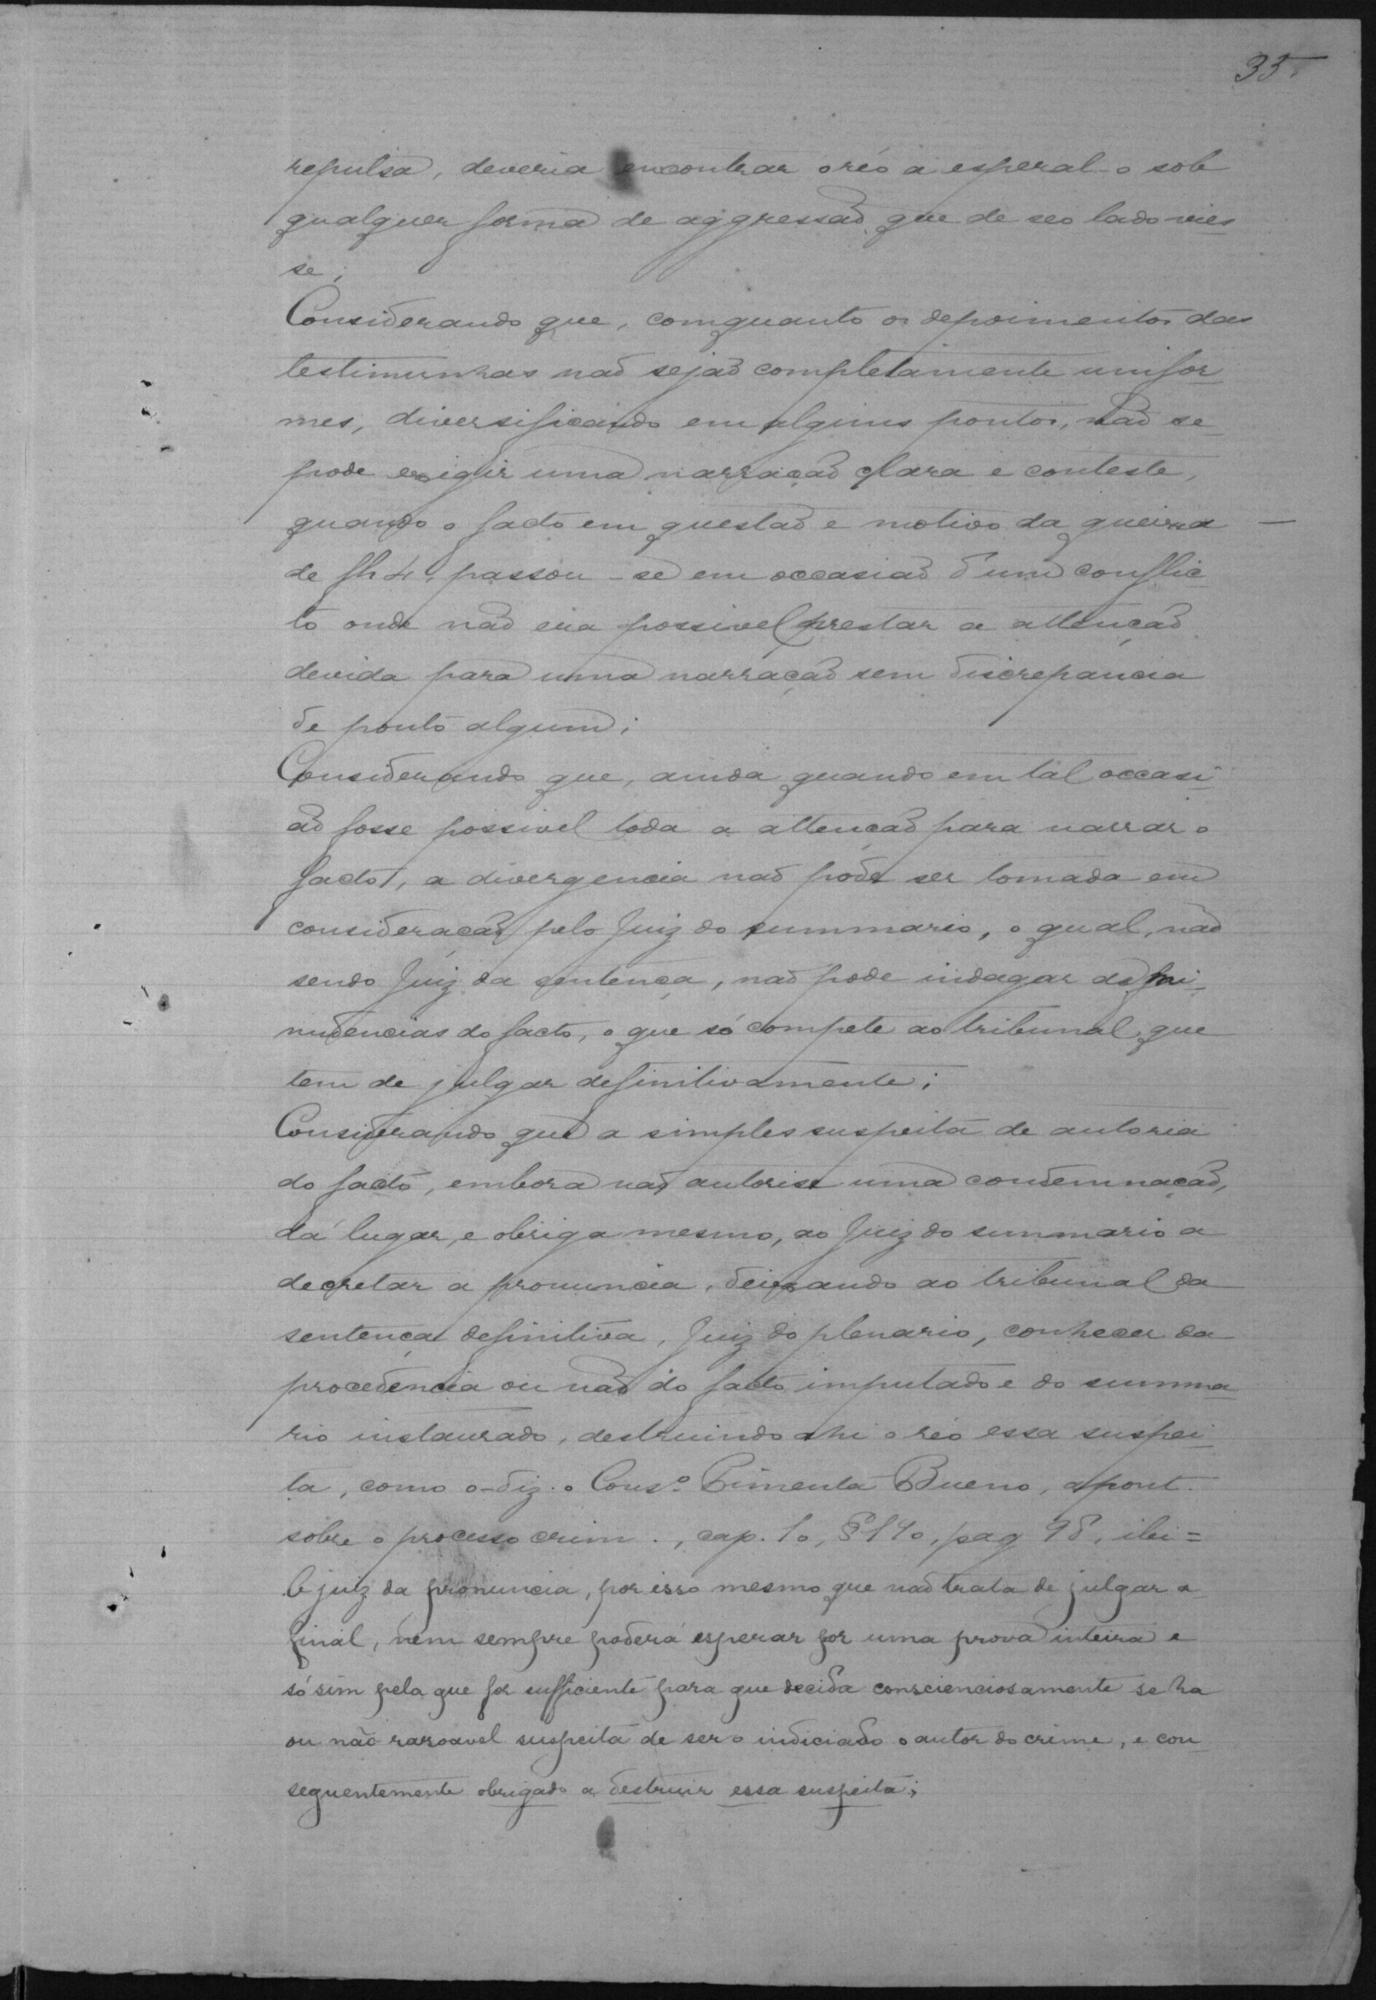 35.
repulsa, deveria encontrar o réo a esperal-o sob
qualquer forma de aggressão que de seo lado vies
se;
Considerando que, comquanto os depoimentos das
testimunhas não sejão completamente unifor
mes, diversificando em alguns pontos, não se
pode exigir uma narração clara e conteste,
quando o facto em questão e motivo da queixa
de fls 4, passou-se em occasião d'um conflic
to onde não era possivel prestar a attenção
devida para uma narração sem discrepancia
de ponto algum;
Considerando que, ainda quando em tal occasi
ão fosse possivel toda a attenção para narrar o
facto, a divergencia não pode ser tomada em
consideração pelo Juiz do summario, o qual, não
sendo Juiz da sentença, não pode indagar das mi
nudencias do facto, o que só compete ao tribunal que
tem de julgar definitivamente;
Considerando que a simples suspeita de autoria
do facto, embora não autorise uma condemnação,
dá lugar, e obriga mesmo, ao Juiz do summario a
decretar a pronuncia, deixando ao tribunal da
sentença definitiva, Juiz do plenario, conhecer da
procedencia ou não do facto imputado e do summa
rio instaurado, destruindo ahi o réo essa suspei
ta, como o-diz o Cons.º Pimenta Bueno, apont.
sobre o processo crim., cap. 10, § 140, pag 98, ibi=
O juiz da pronuncia, por isso mesmo que não trata de julgar a
final, nem sempre poderá esperar por uma prova inteira e
só sim pela que for sufficiente para que decida conscienciosamente se ha
ou não rasoavel suspeita de ser o indiciado o autor do crime, e con
sequentemente obrigado a destruir essa suspeita;